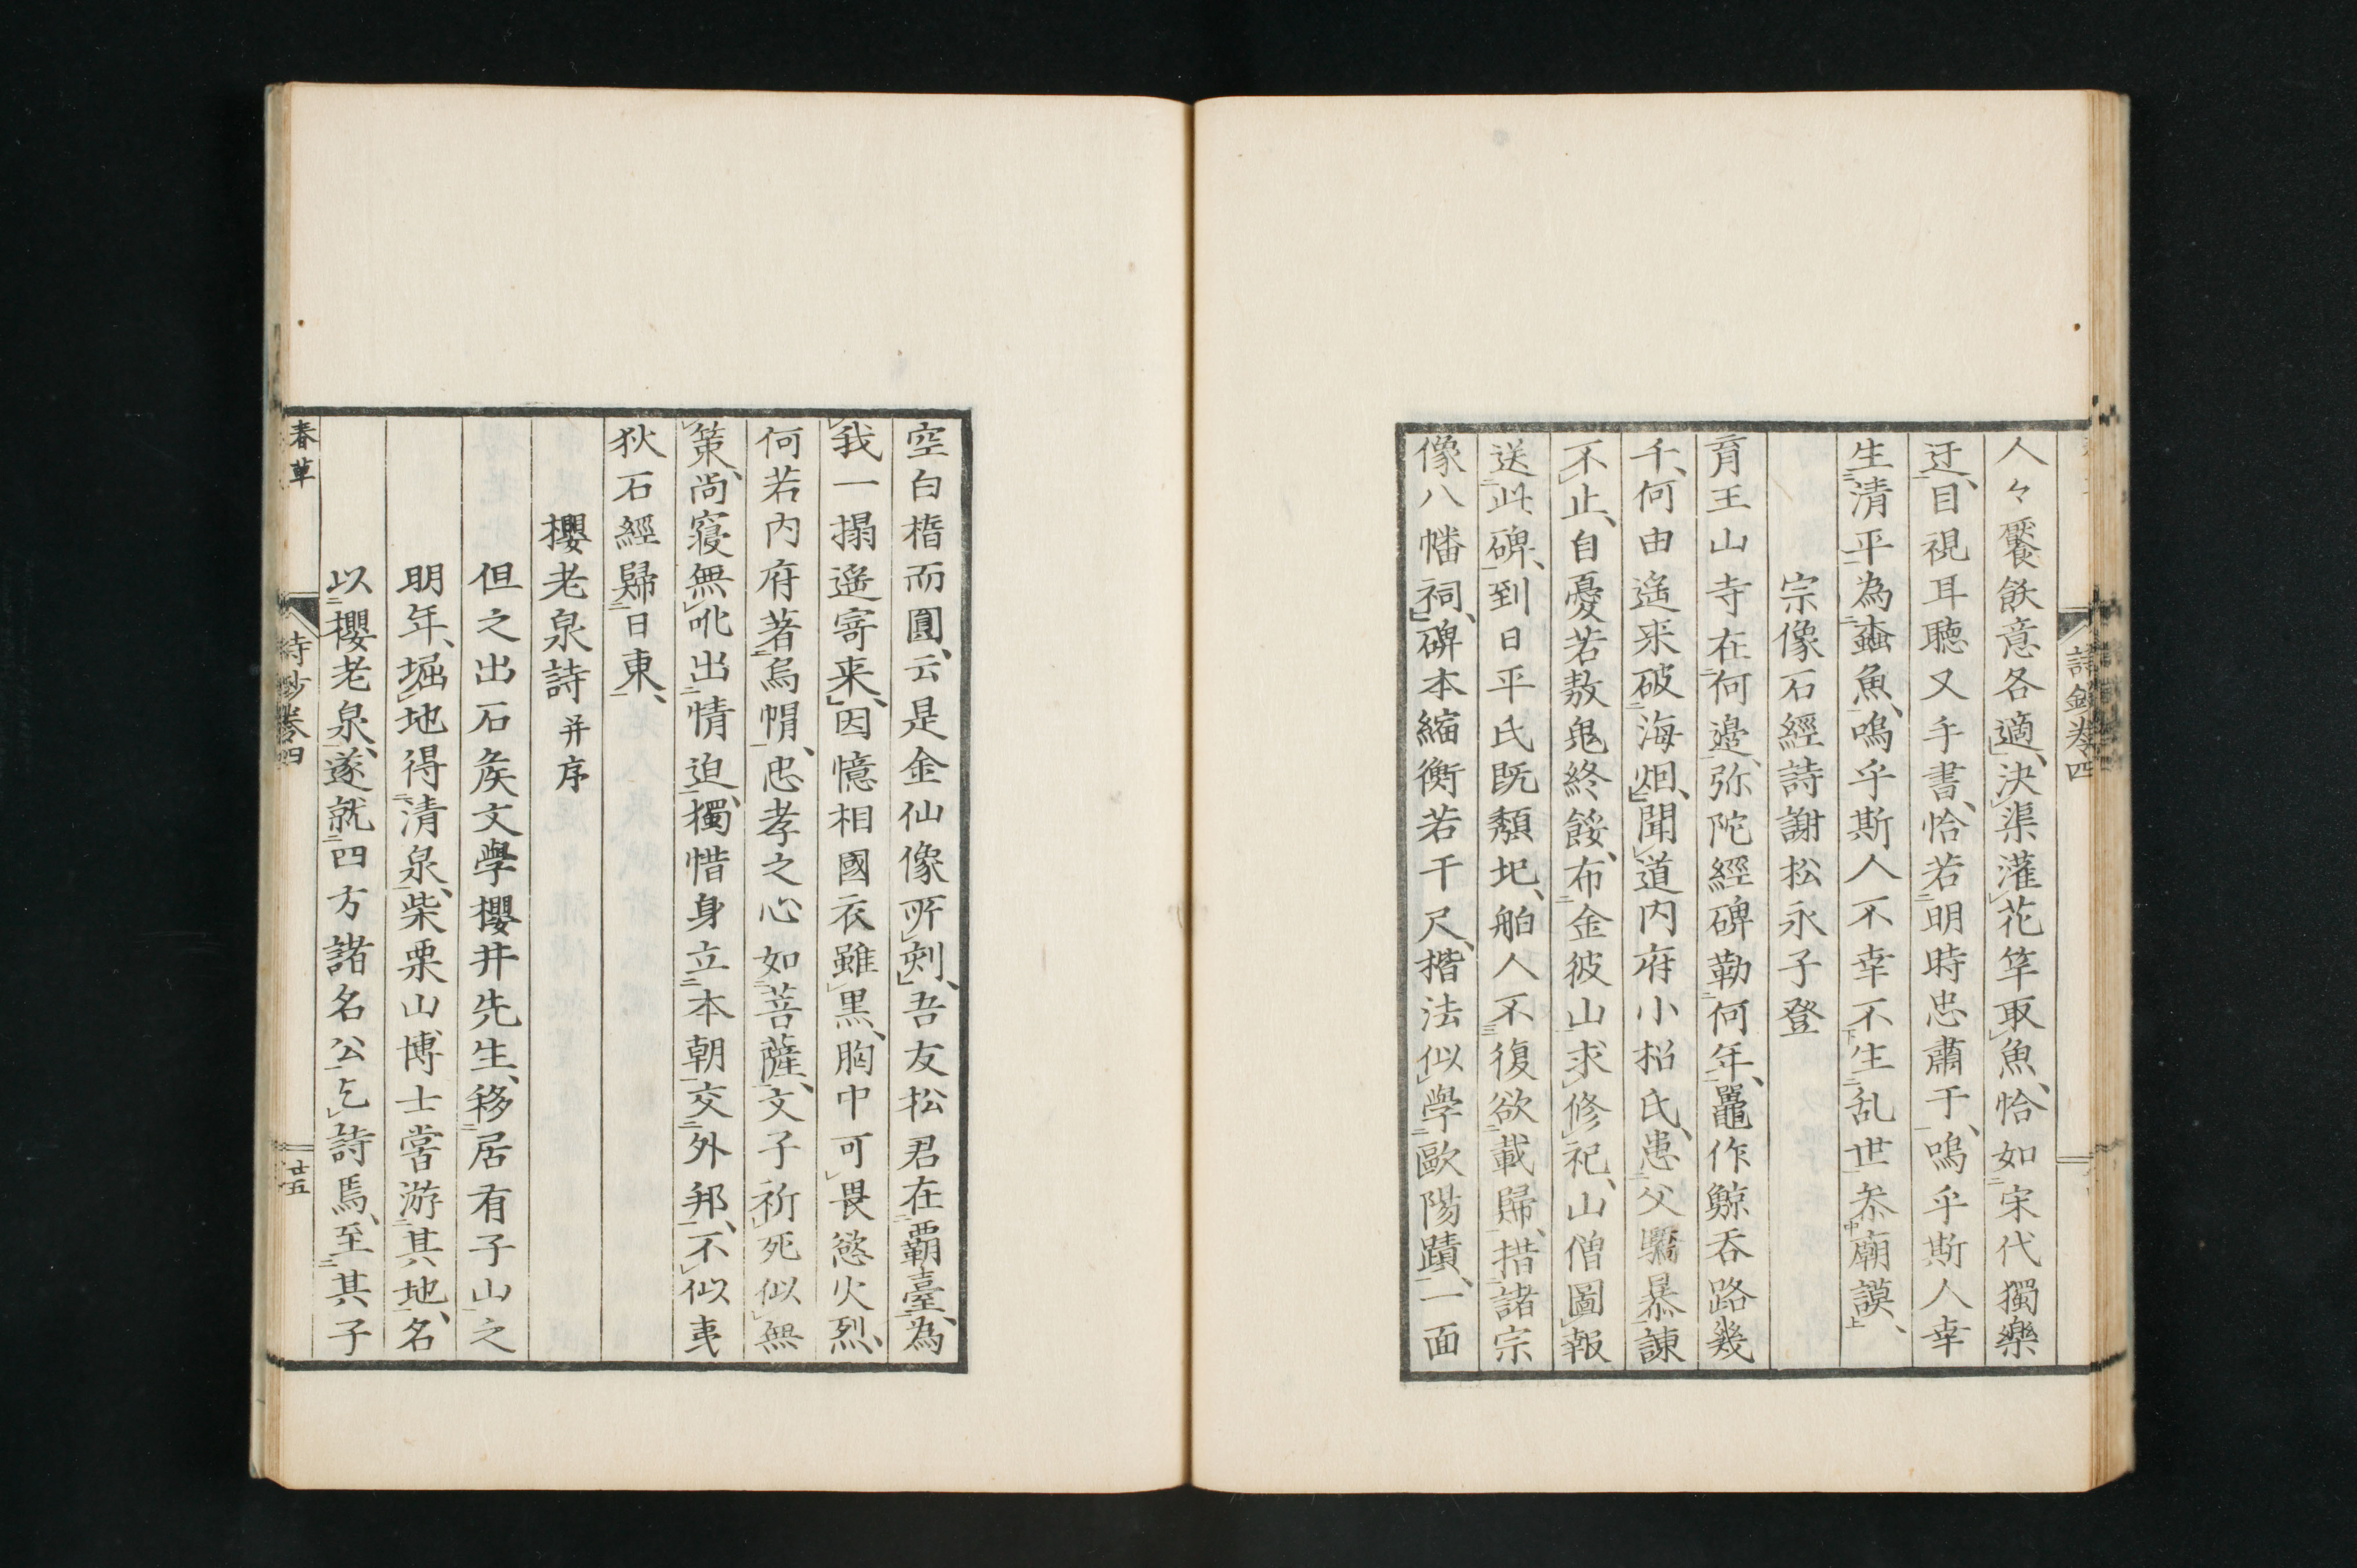 人々饜飫意各適、決渠灌花竿取魚、恰如宋代獨樂
迂、目視耳聽又手書、恰若明時忠肅于、嗚乎斯人幸
生清平為蠧魚、嗚乎斯人不幸不生乱世叅廟謨、
宗像石經詩謝松永子登
育王山寺在何邉、弥陀經碑勒何年、鼉作鯨吞路幾
千、何由遙来破海烟、聞道内府小松氏、患父驕暴諌
不止、自憂若敖鬼終餒、布金彼山求修祀、山僧圖報
送此碑、到日平氏既頽圯、舶人不復欲載歸、措諸宗
像八幡祠、碑本縮衡若干尺、楷法似學歐陽蹟、一面
詩鈔卷四
空白楕而圓、云是金仙像所刻、吾友松君在覇臺、為
我一搨遙寄来、因憶相國衣雖黒、胸中可畏慾火烈、
何若内府著烏帽、忠孝之心如菩薩、文子祈死似無
策、尚寝無吪出情迫、獨惜身立本朝交外邦、不似夷
狄石經歸日東、
櫻老泉詩 并序
但之出石矦文學櫻井先生、移居有子山之
明年、堀地得清泉、柴栗山博士嘗游其地、名
以櫻老泉、遂就四方諸名公乞詩焉、至其子
春草
詩鈔卷四
廿五